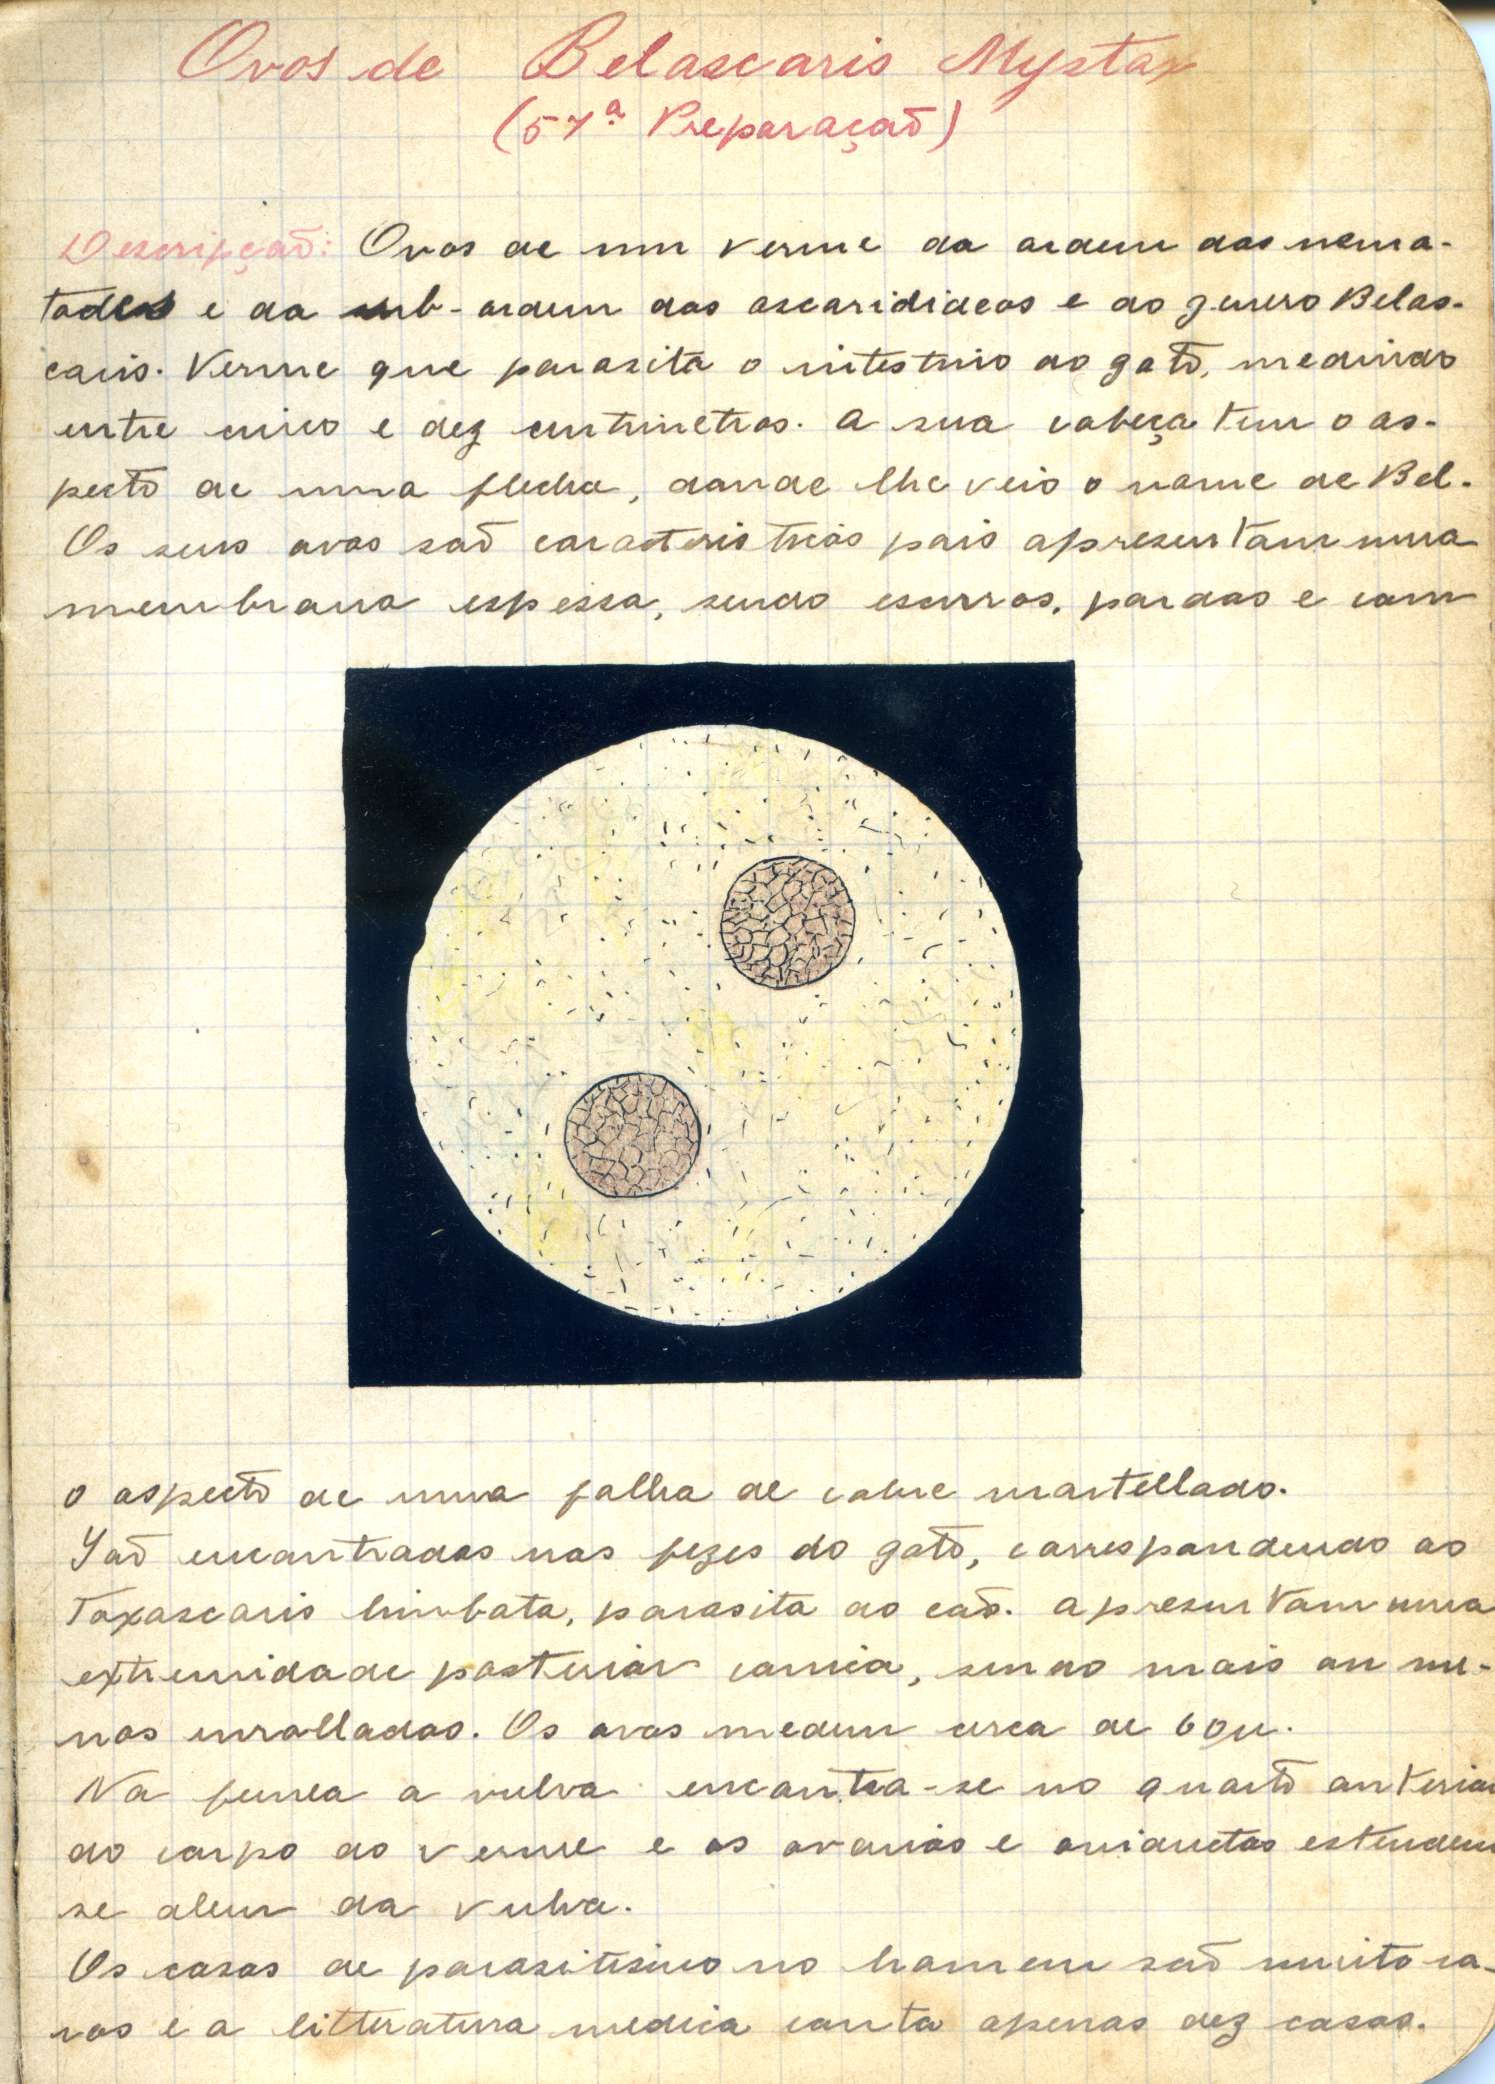 Ovos de Belascaris Mystax
(57ª Preparação)
Descripção: Ovos de um verme da ordem dos nema-
todes e da sub-ordem dos ascaridideos e do genero Belas-
caris. Verme que parasita o intestino do gato, medindo
entre cinco e dez centimetros. A sua cabeça tem o as-
pecto de uma flecha, donde lhe veio o nome de Bel.
Os seus ovos são caracteristicos pois apresentam uma
membrana espessa, sendo escuros, pardos e com
o aspecto de uma folha de cobre martellado.
São encontrados nas fezes do gato, correspondendo ao
Toxascaris limbata, parasita do cão. Apresentam uma
extremidade posterior conica, sendo mais ou me-
nos enrollados. Os ovos medem cerca de 60µ.
Na femea a vulva encontra-se no quarto anterior
do corpo do verme e os ovarios e oviductos estendem
se alem da vulva.
Os casos de parasitismo no homem são muito ra-
ros e a litteratura medica conta apenas dez casos.